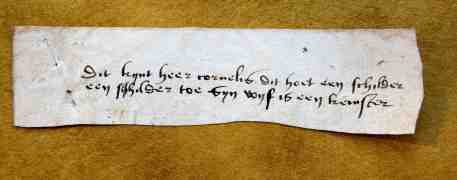 dit kynt heer cornelis dit hoet een schilder
een schilder toe syn wyf is een